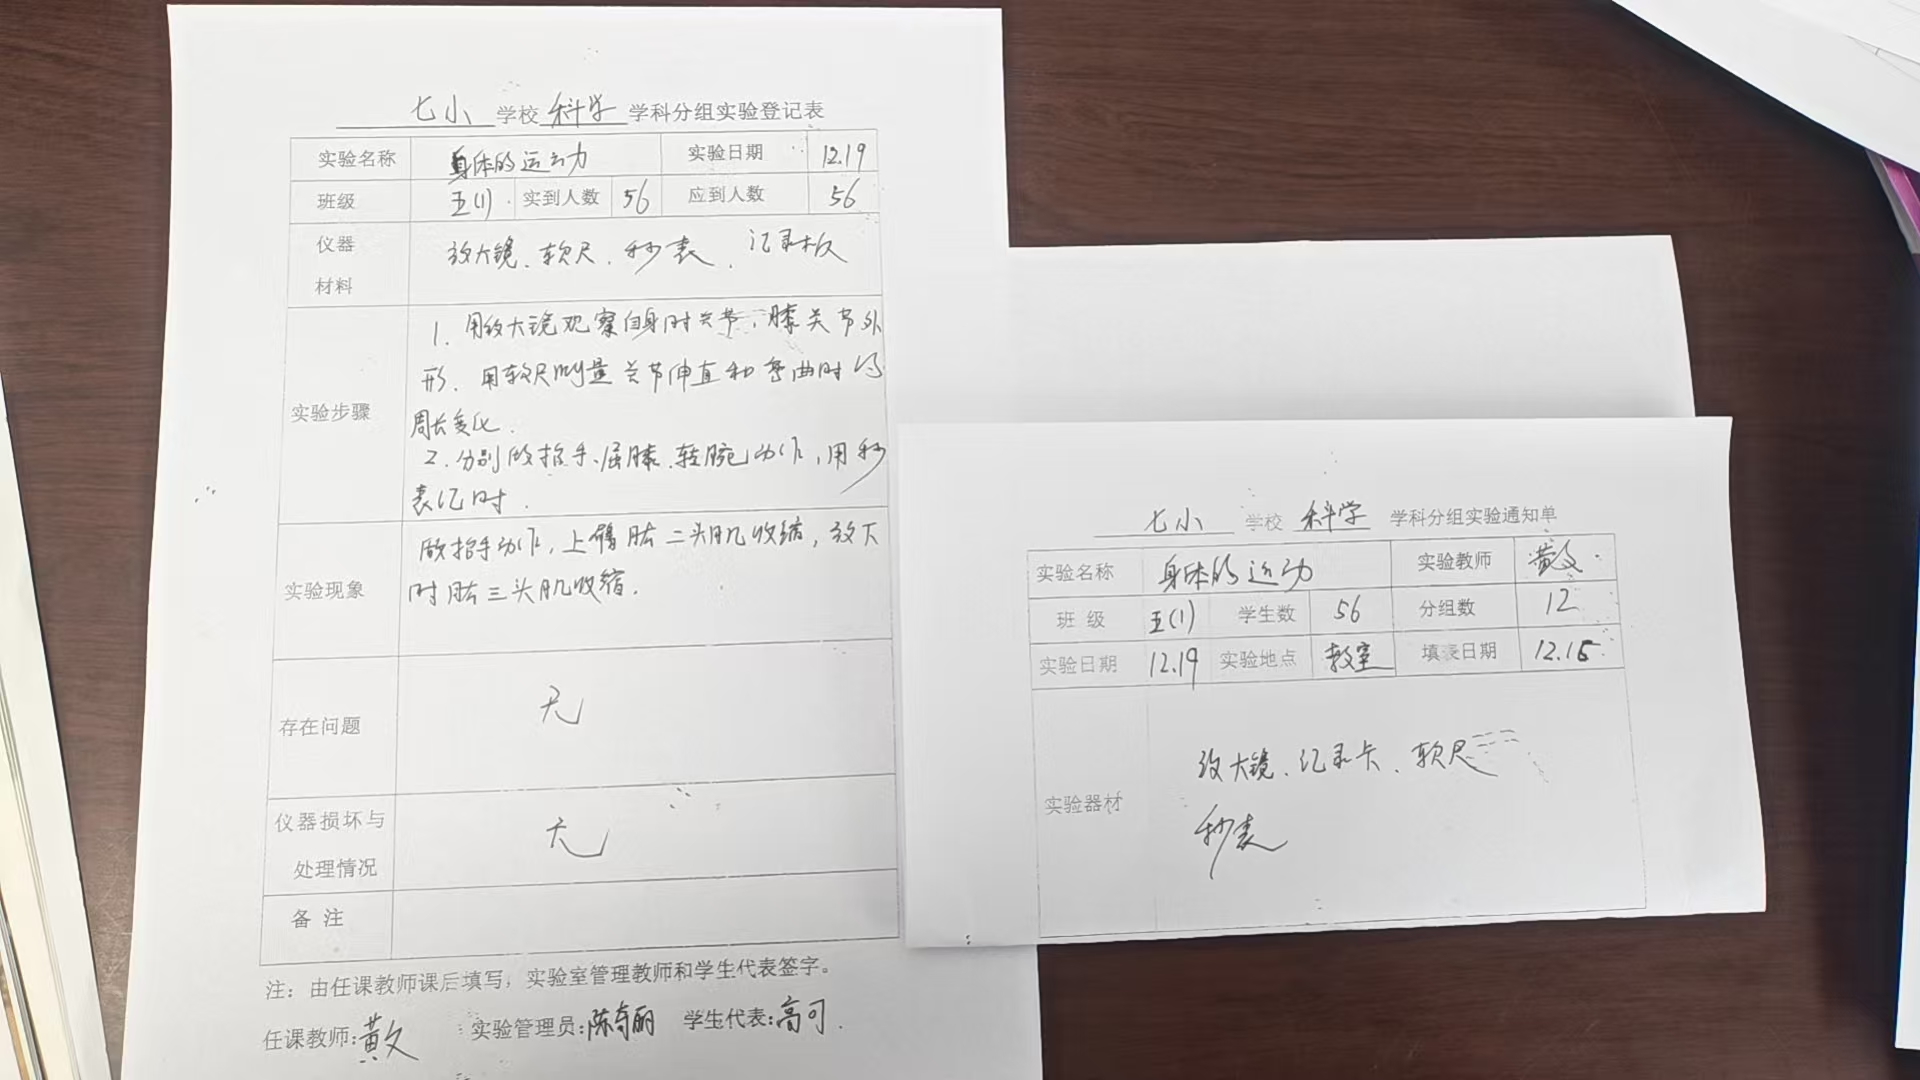 七小 学校 科学 学科分组实验登记表
实验名称 身体的运动 实验日期 12.19
班级 五(1) 实到人数 56 应到人数 56
仪器 材料 放大镜、软尺、秒表、记录板
实验步骤
1. 用放大镜观察自身肘关节,膝关节外
形. 用软尺测量关节伸直和弯曲时的
周长变化.
2. 分别做抬手、屈膝、转腕动作,用秒
表记时.
实验现象
做抬手动作,上臂肱二头肌收缩,放下
时肱三头肌收缩.
存在问题 无
仪器损坏与
处理情况 无
备 注
注:由任课教师课后填写,实验室管理教师和学生代表签字。
任课教师:黄文 实验管理员:陈奇丽 学生代表:高可.
七小 学校 科学 学科分组实验通知单
实验名称 身体的运动 实验教师 黄文
班 级 五(1) 学生数 56 分组数 12
实验日期 12.19 实验地点 教室 填表日期 12.15
实验器材
放大镜、记录卡、软尺
秒表